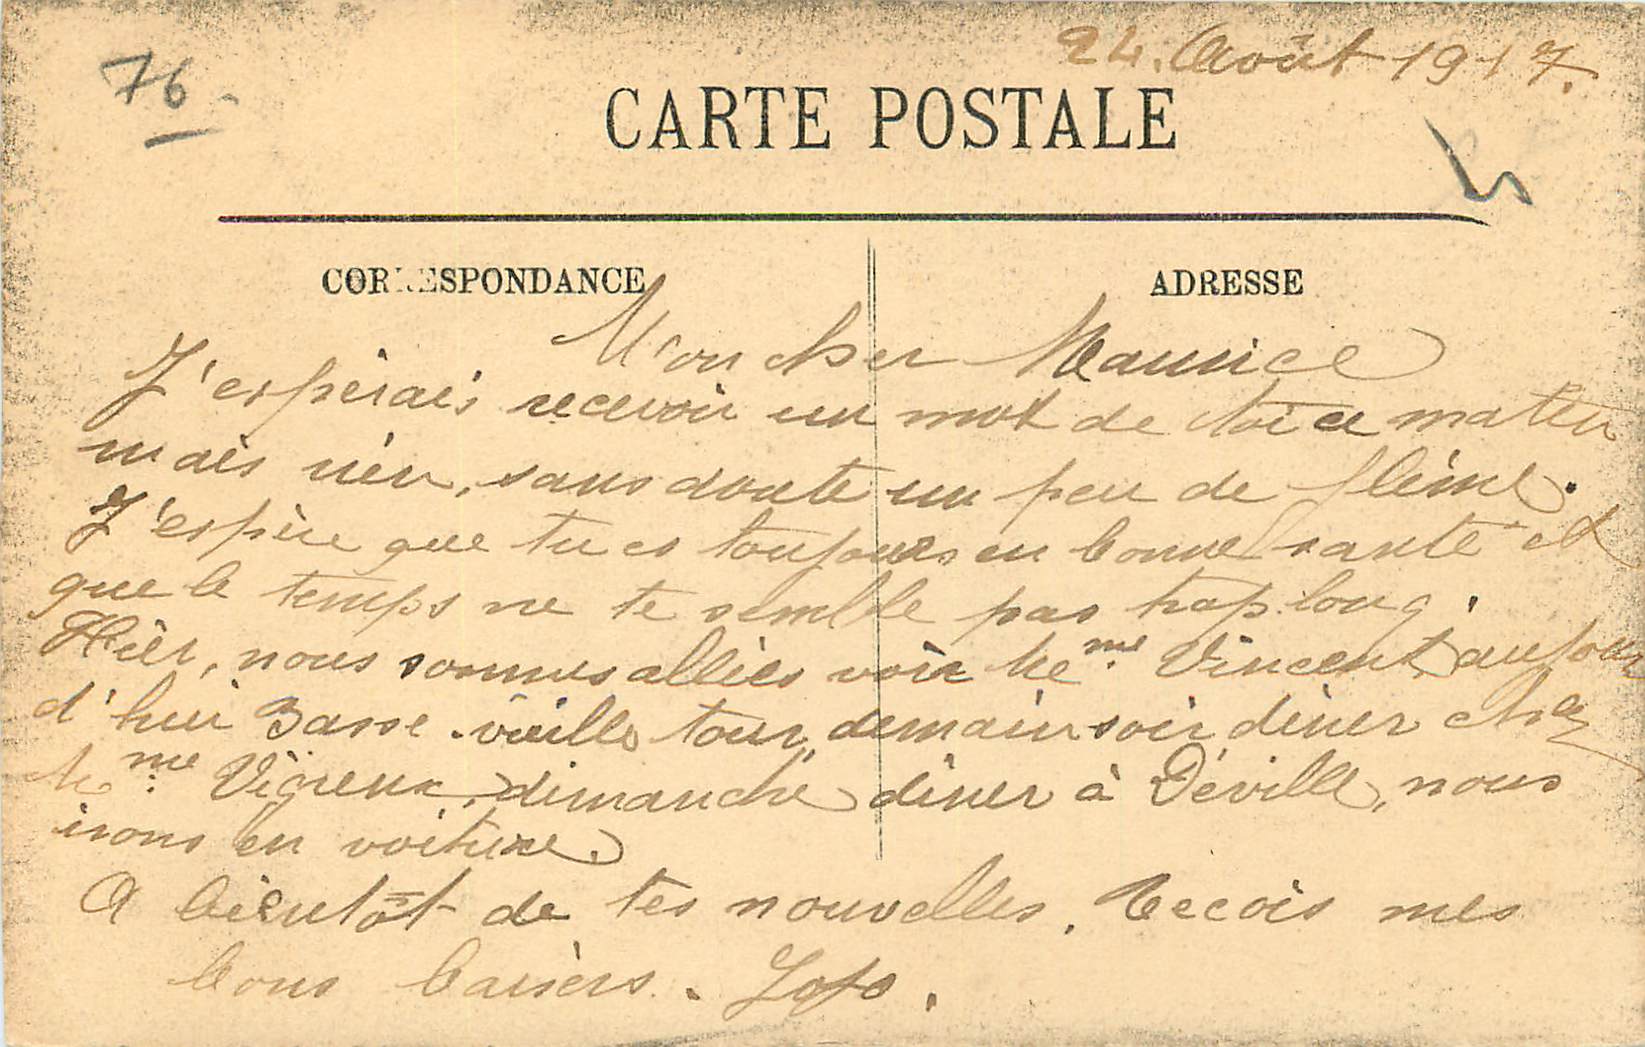 76
24. Août 1917.
CARTE POSTALE
CORRESPONDANCE
ADRESSE
Mon cher Maurice
J'espérais recevoir un mot de toi ce matin
mais rien, sans doute un peu de flême.
J'espère que tu es toujours en bonne santé et
que le temps ne te semble pas trop long.
Hier, nous sommes allées voir Me.me Vincent, aujour
d'hui Basse vieille tour, demain soir diner chez
Me.me Vigreux, dimanche diner à Déville, nous
irons en voiture.
A bientôt de tes nouvelles. Recois mes
bons baisers. Jojo.